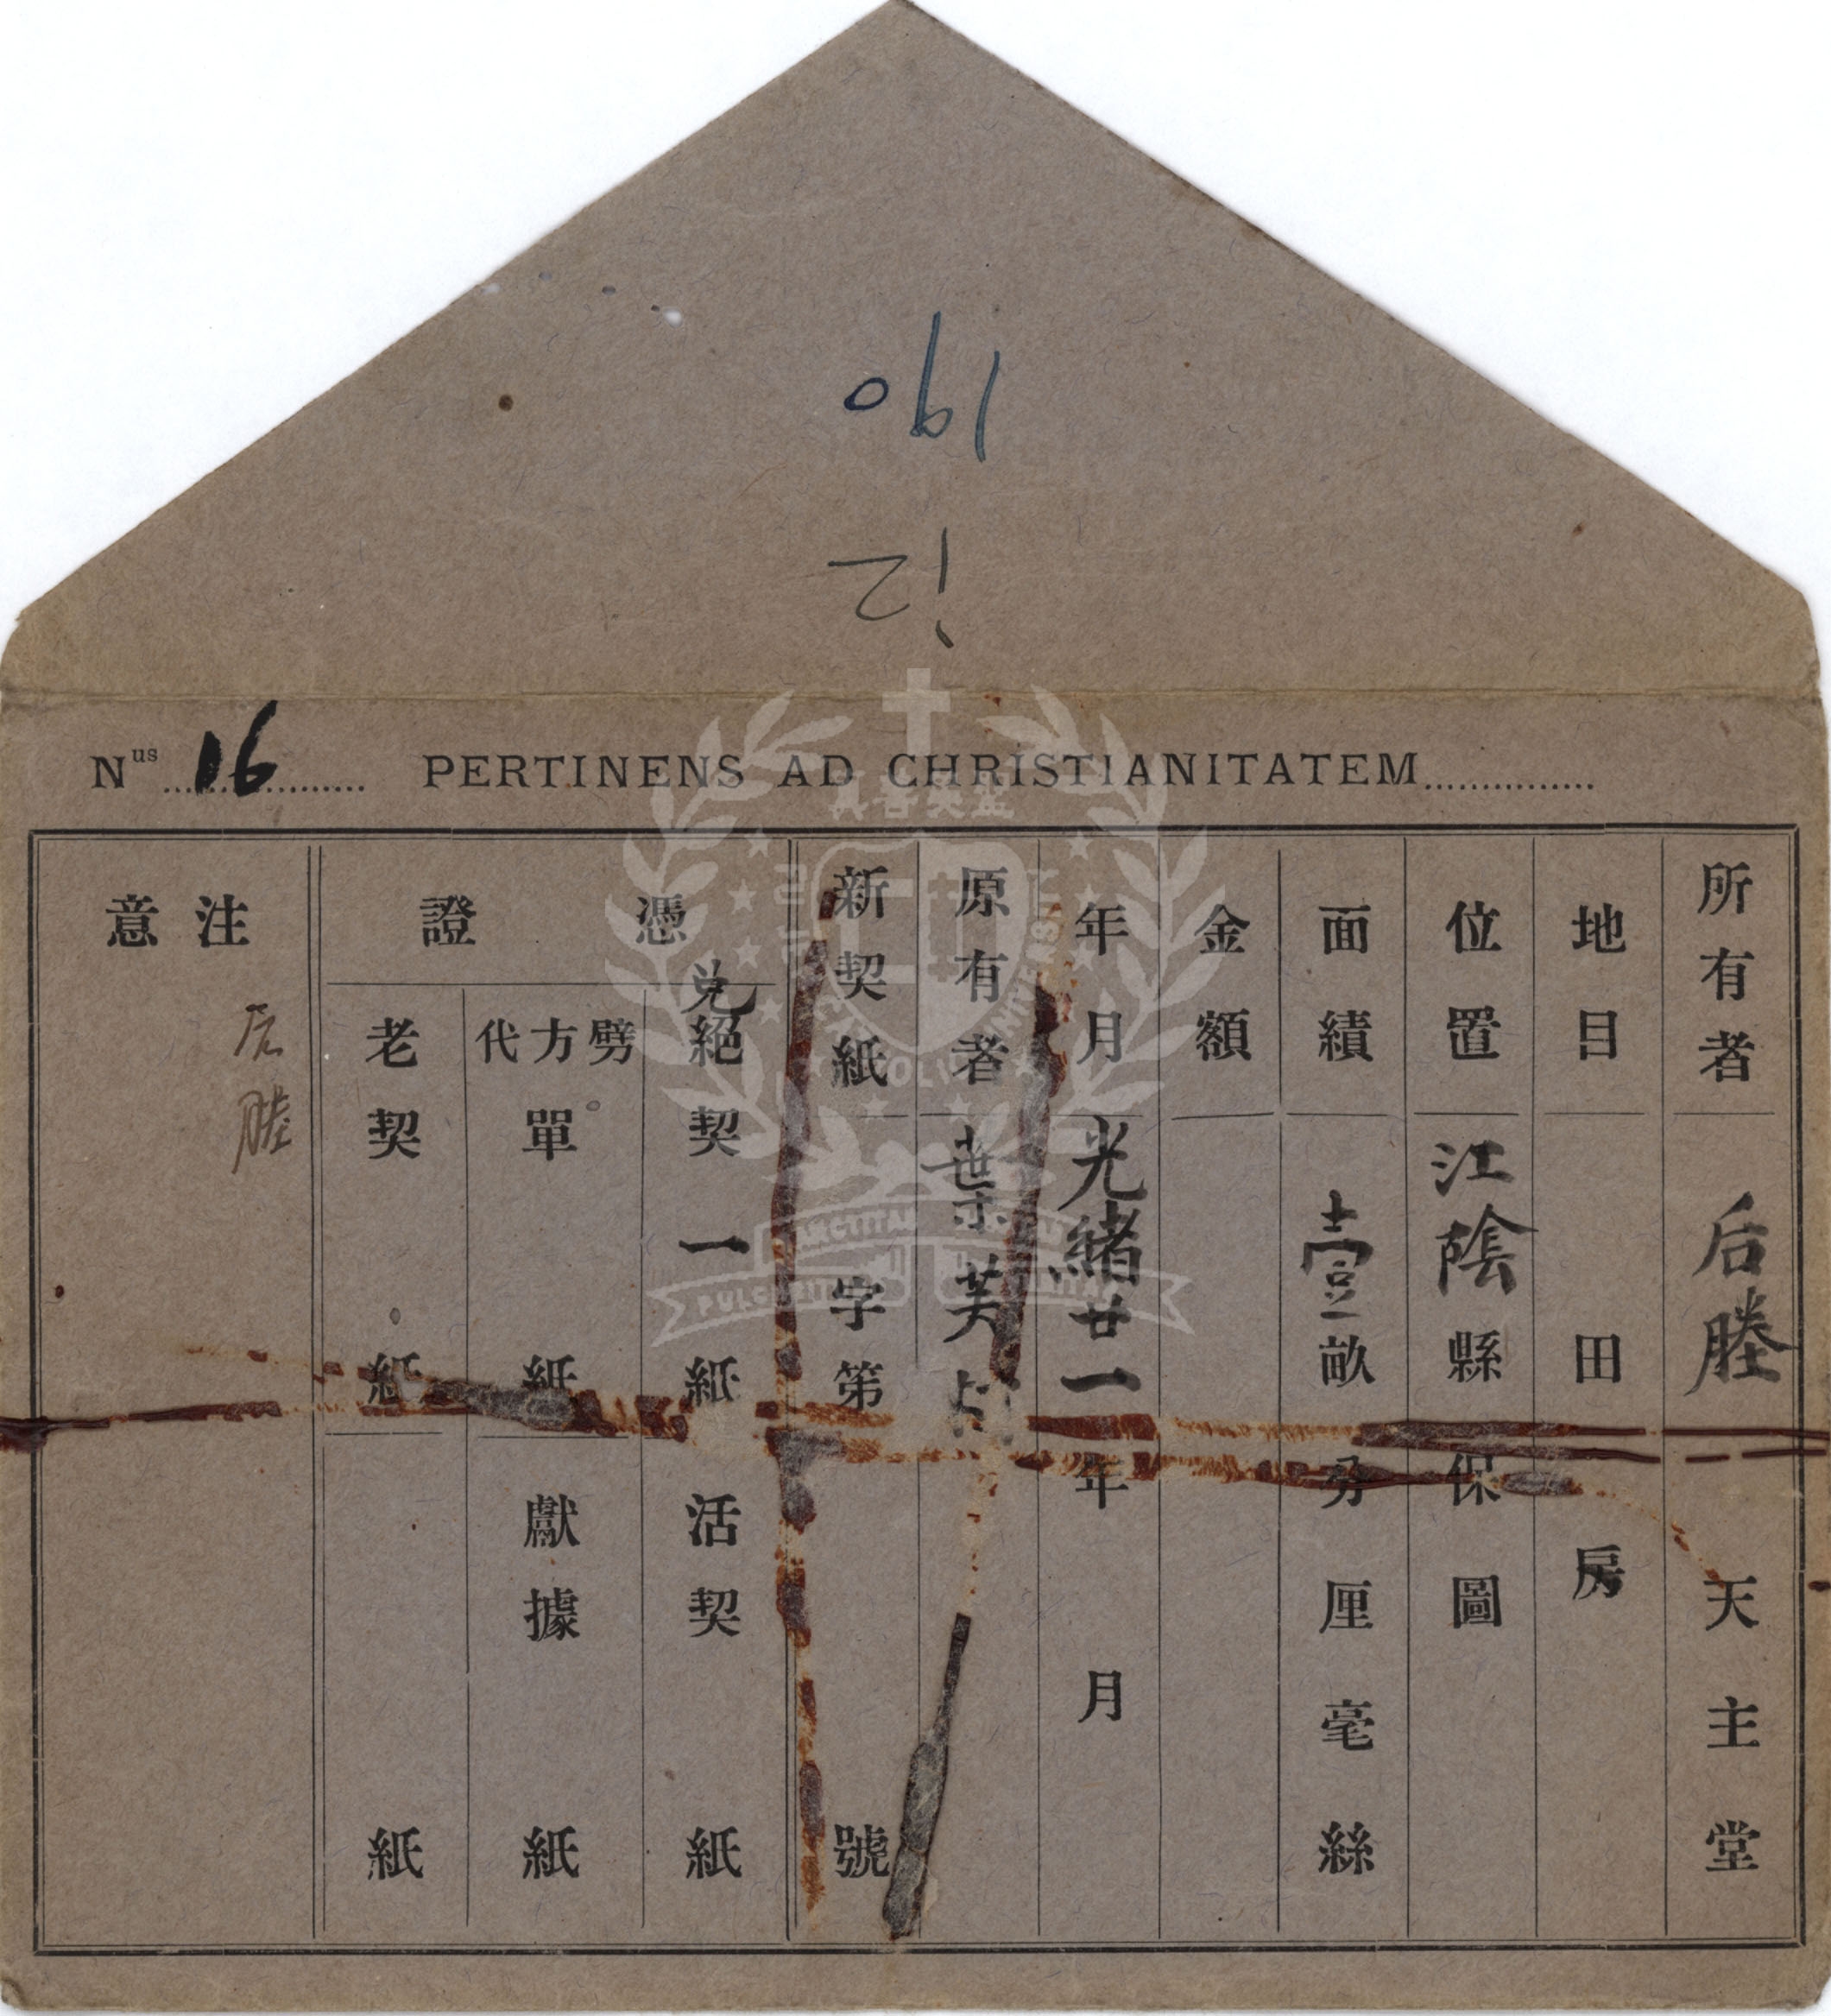 190
12
Nus 16 PERTINENS AD CHRISTIANITATEM
所有者 后塍 天主堂
地目 田 房
位置 江陰縣 保 圖
面績 壹畝 分 厘 毫 絲
金額
年月 光緒廿一年 月
原有者 葉芙
新契紙 字第 號
憑證
兌絕契 一紙 活契 紙
劈方代單 紙 獻據 紙
老契 紙 紙
注意
后塍